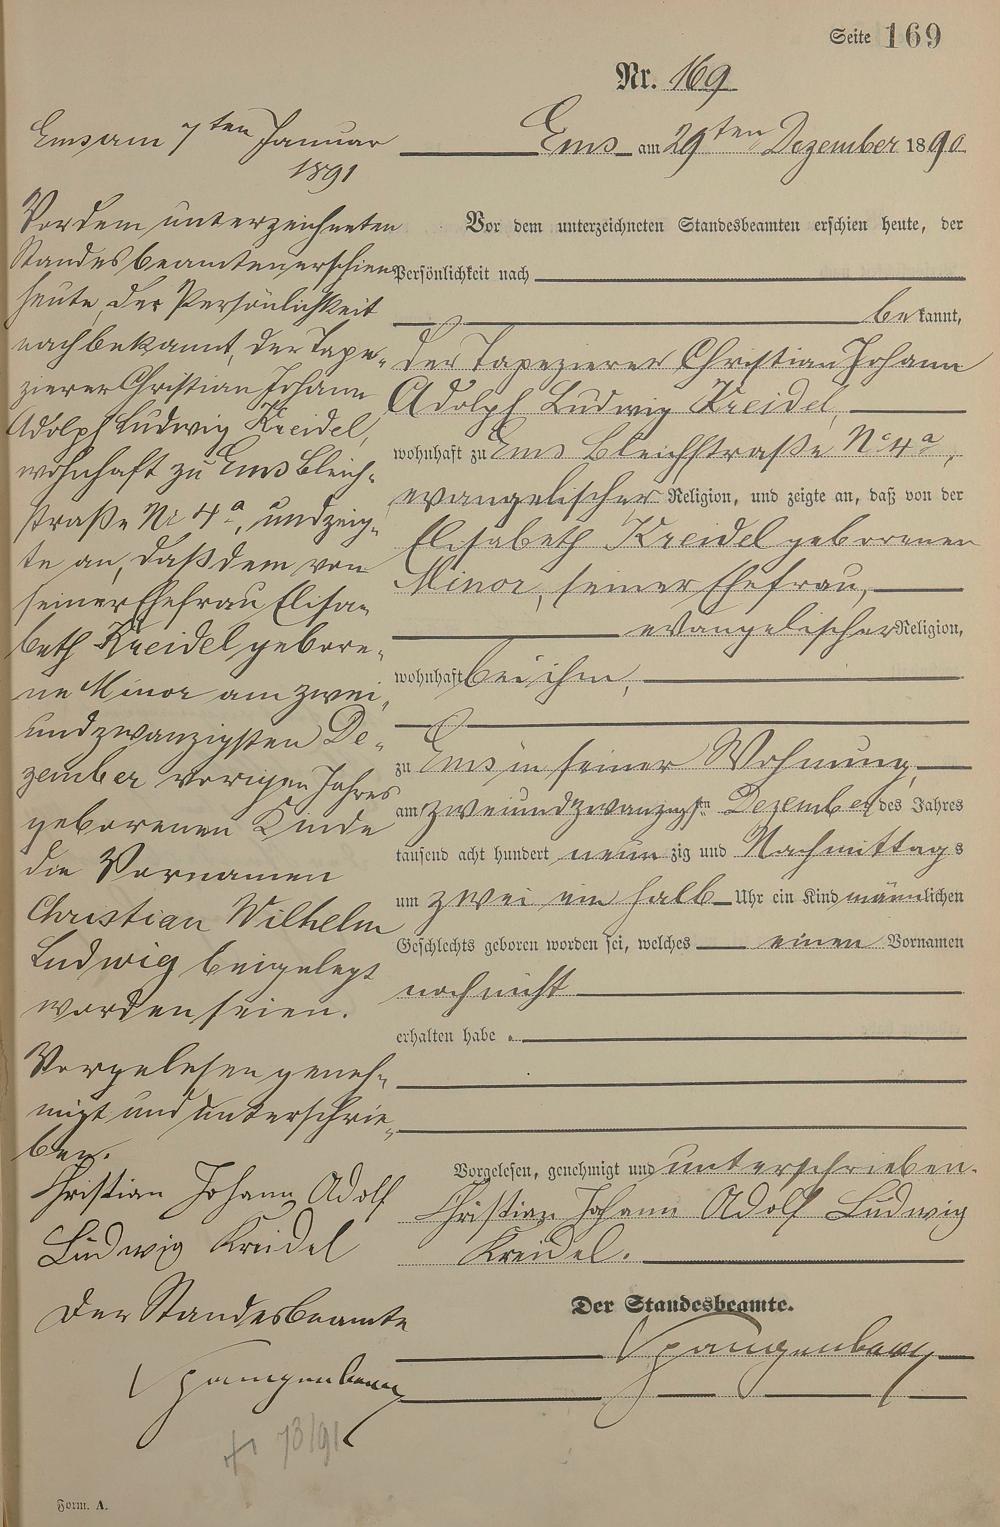 Seite 169
Nr. 169
Ems am 29ten Dezember 1890
Vor dem unterzeichneten Standesbeamten erschien heute, der
Persönlichkeit nach
bekannt,
der Tapezierer Christian Johann
Adolph Ludwig Kreidel,
wohnhaft zu Ems Bleichstraße No 4a,
evangelischer Religion, und zeigte an, daß von der
Elisabeth Kreidel geborenen
Minor, seiner Ehefrau,
evangelischer Religion,
wohnhaft bei ihm,
zu Ems in seiner Wohnung,
am zweiundzwanzigsten Dezember des Jahres
tausend acht hundert neunzig und Nachmittags
um zwei ein halb Uhr ein Kind männlichen
Geschlechts geboren worden sei, welches einen Vornamen
noch nicht
erhalten habe.
Vorgelesen, genehmigt und unterschrieben.
Christian Johann Adolf Ludwig
Kreidel.
Der Standesbeamte.
Spangenberg
Ems am 7ten Januar
1891
Vor dem unterzeichneten
Standesbeamten erschien
heute, der Persönlichkeit
nach bekannt, der Tape-
zierer Christian Johann
Adolph Ludwig Kreidel,
wohnhaft zu Ems Bleich-
straße No 4a, und zeig-
te an, daß dem von
seiner Ehefrau Elisa-
beth Kreidel gebore-
ne Minor am zwei-
undzwanzigsten De-
zember vorigen Jahres
geborenen Kinde
die Vornamen
Christian Wilhelm
Ludwig beigelegt
worden seien.
Vorgelesen geneh-
migt und unterschrie-
ben.
Christian Johann Adolf
Ludwig Kreidel
Der Standesbeamte
Spangenberg
73/91
Form. A.